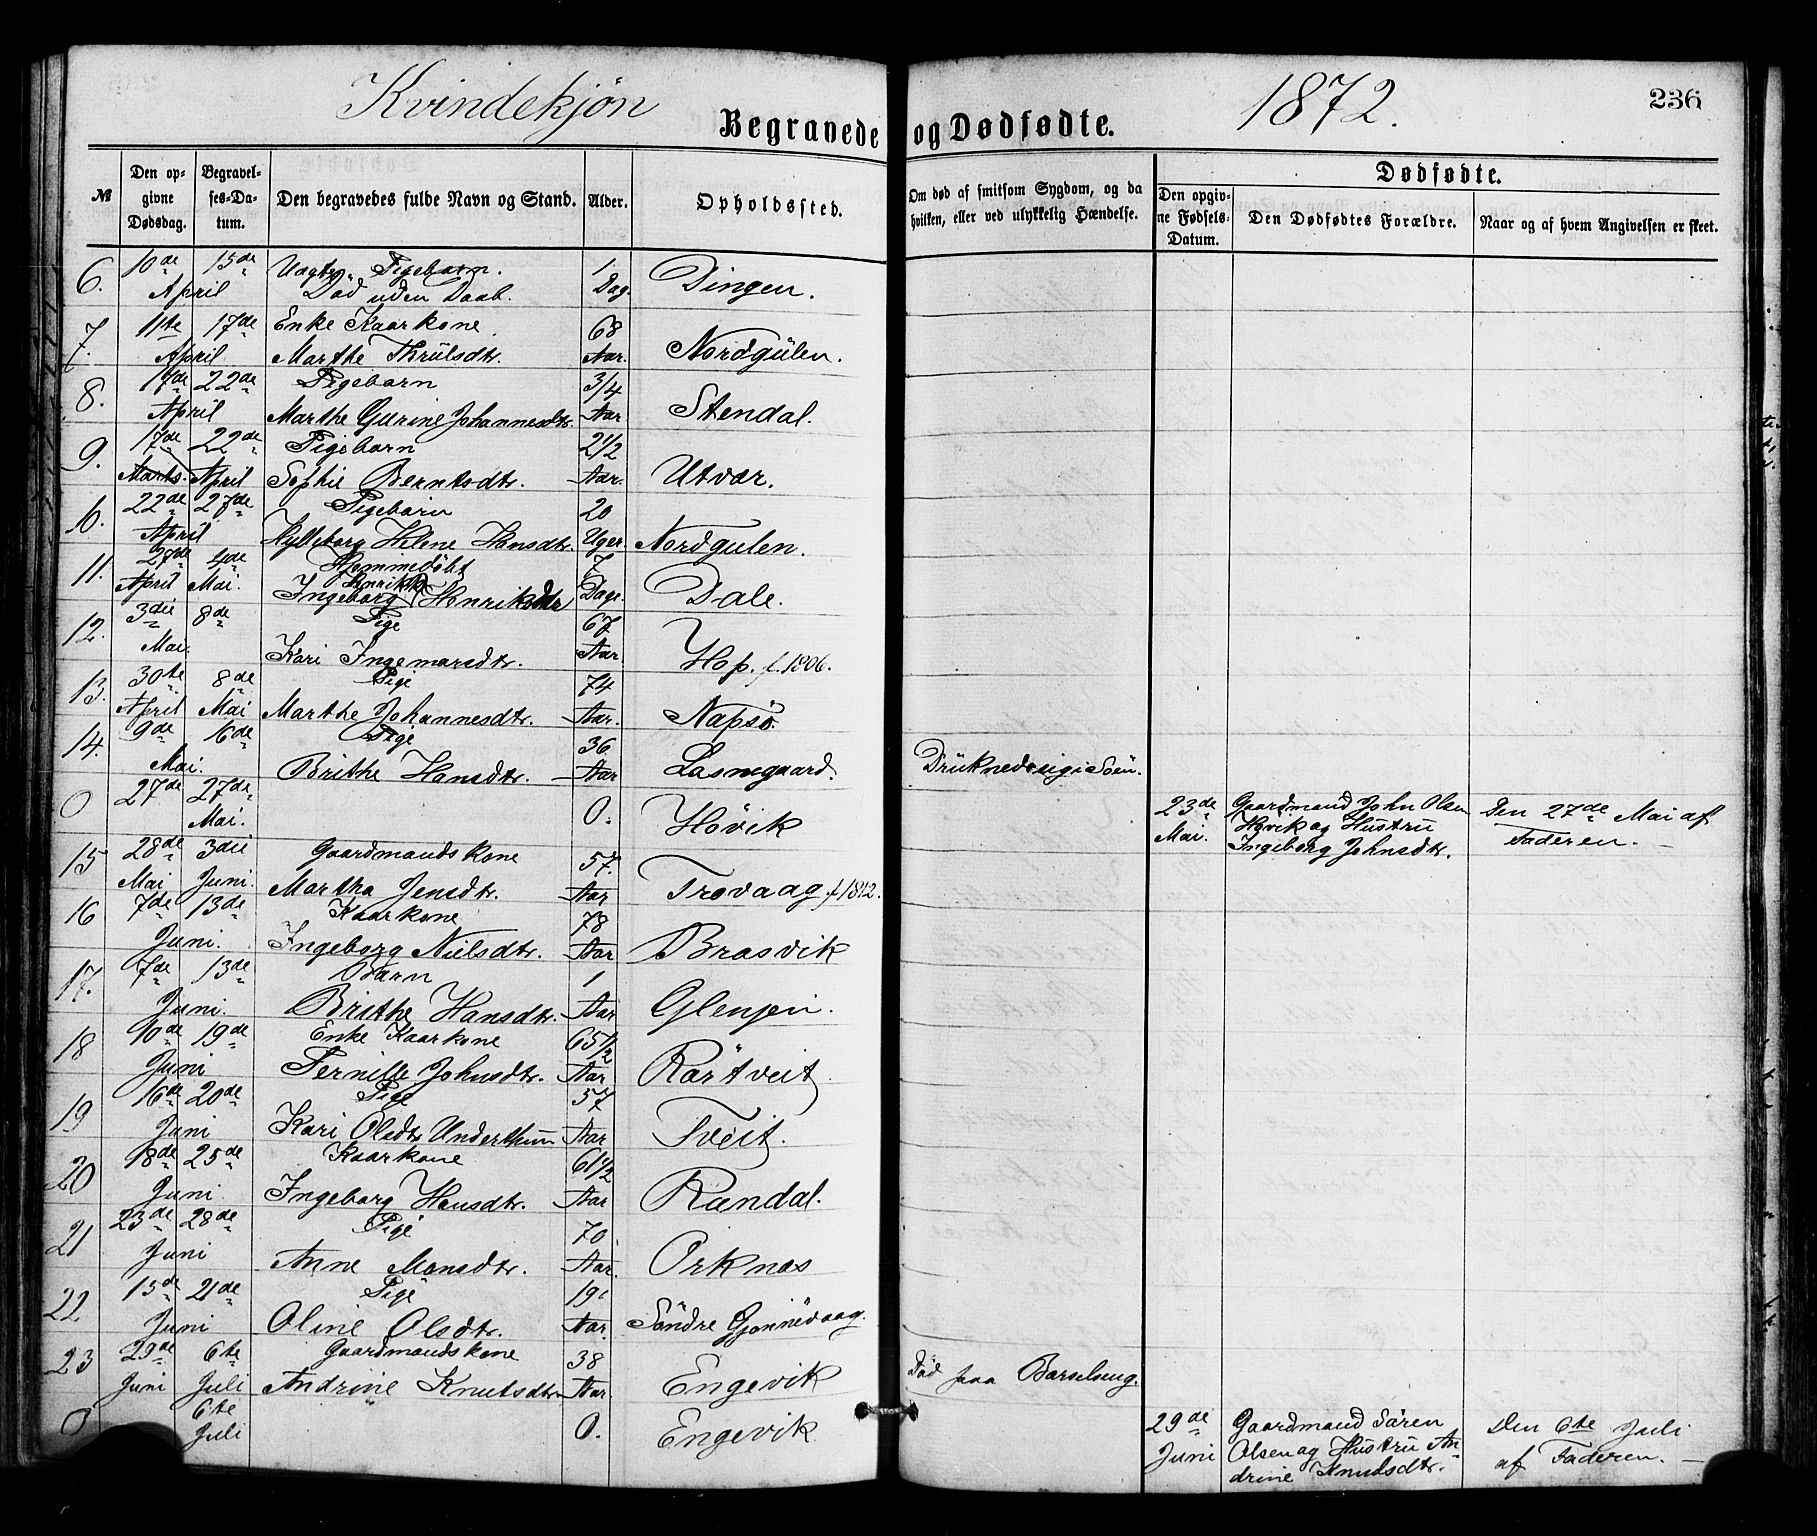 Kvindekjøn
Begravede og Dødfødte.
1872.
236
№
Den opgivne Dødsdag.
Begravelses-Datum.
Den begravedes fulde Navn og Stand.
Alder.
Opholdssted.
Om død af smitsom Sygdom, og da hvilken, eller ved ulykkelig Hændelse.
Dødfødte.
Den opgivne Fødsels-Datum.
Den Dødfødtes Forældre.
Naar og af hvem Angivelsen er skeet.
6. 10de 15de Uægte Pigebarn. 1
April Död uden Daab. Dag. Dingen.
7. 11te 17de Enke Kaarkone 68
April Marthe Thrulsdtr. Aar. Nordgulen.
8. 17de 22de Pigebarn 3/4
April Marthe Gurine Johannesdtr. Aar Stendal.
9. 17de 22de Pigebarn 2 1/2
Marts. April Sophie Berntsdtr. Aar. Utvær.
22de 27de Pigebarn 20
April Hylleborg Helene Hansdtr. Uger. Nordgulen.
11. 27de 4de Hjemmedöbt 7
April Mai. Ingeborg Henriksdtr Dage. Dale.
12. 3die 8de Pige 67
Mai. Kari Ingemarsdtr. Aar. Hop. f. 1806.
13. 30te 8de Pige 74
April Mai Marthe Johannesdtr. Aar. Napsö.
14. 9de 16de Pige 36
Mai. Brithe Hansdtr. Aar Druknede sig i Söen.
0 27de 27de Mai. 0. Hövik 23de Mai. Gaardmand John Olsen Den 27de Mai af
Hövik og Hustru Faderen.
Ingeborg Johnsdtr.
15 28de 3die Gaardmandskone 57.
Mai Juni. Martha Jensdtr. Aar Trovaag f 1812.
16 7de 13de Kaarkone 78
Juni. Ingeborg Nielsdtr. Aar Brosvik
17. 7de 13de Barn 1
Juni. Brithe Hansdtr. Aar Glenjen.
18 10de 19de Enke Kaarkone 65 1/2
Juni Pernille Johnsdtr. Aar Rörtveit
19 16de 20de Pige 57
Juni Kari Olsdtr Underthun Aar Tveit.
20 18de 25de Kaarkone 61 1/2
Juni. Ingeborg Hansdtr. Aar Randal.
21 23de 28de Pige 70
Juni Anne Monsdtr. Aar. Orknæs
22. 15de 21de Pige 19
Juni Oline Olsdtr. Aar. Söndre Gjönnevaag.
23 29de 6te Gaardmandskone 38
Juni Juli Andrine Knutsdtr Aar Engevik Död paa Barselseng.
0 6te Juli 0. Engevik 29de Gaardmand Sören Den 6te Juli
Juni Olsen og Hustru An- af Faderen.
drine Knudsdtr.